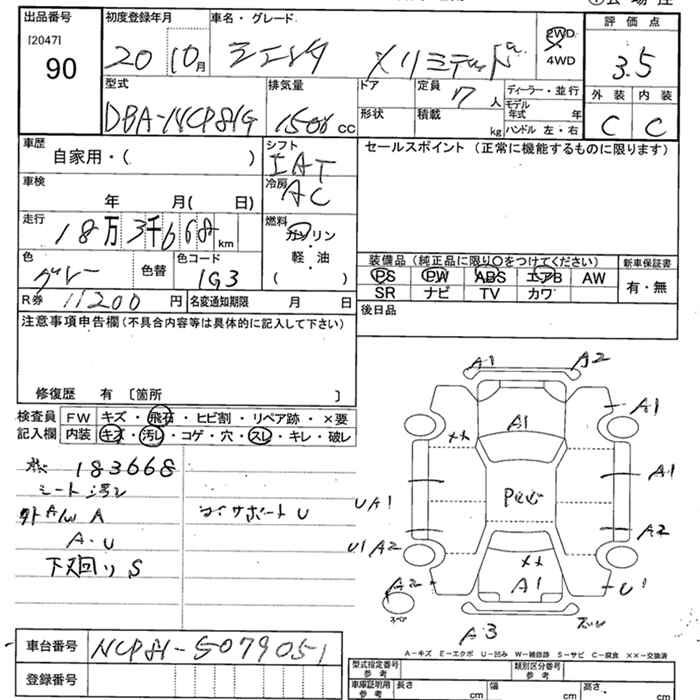 出品番号
[2047]
90
初度登録年月
20 10月
車名・グレード
シエンタ Xリミテッド
2WD
4WD
評価点
3.5
外装 内装
C C
型式
DBA-NCP81G
排気量
1500 CC
ドア
形状
定員 7人
積載 kg
ディーラー・並行
モデル年式 年
ハンドル 左・右
車歴
自家用・( )
シフト
IAT
冷房
AC
セールスポイント (正常に機能するものに限ります)
車検
年 月( 日)
走行
18万3千668km
燃料
ガソリン
・
軽・油
( )
色
グレー
色替
色コード
1G3
装備品 (純正品に限り○をつけてください)
PS PW ABS エアB AW
SR ナビ TV カワ
新車保証書
有・無
R券 11200円
名変通知期限 月 日
後日品
注意事項申告欄(不具合内容等は具体的に記入して下さい)
修復歴 有 [箇所 ]
検査員記入欄
FW キズ・飛石・ヒビ割・リペア跡・×要
内装 キズ・汚レ・コゲ・穴・スレ・キレ・破レ
183668
シート汚レ
A
A・U
下廻り S
コアサポート U
A1 A2
A1
A1
××
A1
UA1
A2
U1 A2
××
A1
U1
A2
スペア
A3
A-キズ E-エクボ U-凹み W-補修跡 S-サビ C-腐食 ××-交換済
車台番号 NCP81-5079051
登録番号
型式指定番号
参考
類別区分番号
参考
車庫証明用
参考
長さ cm
幅 cm
高さ cm